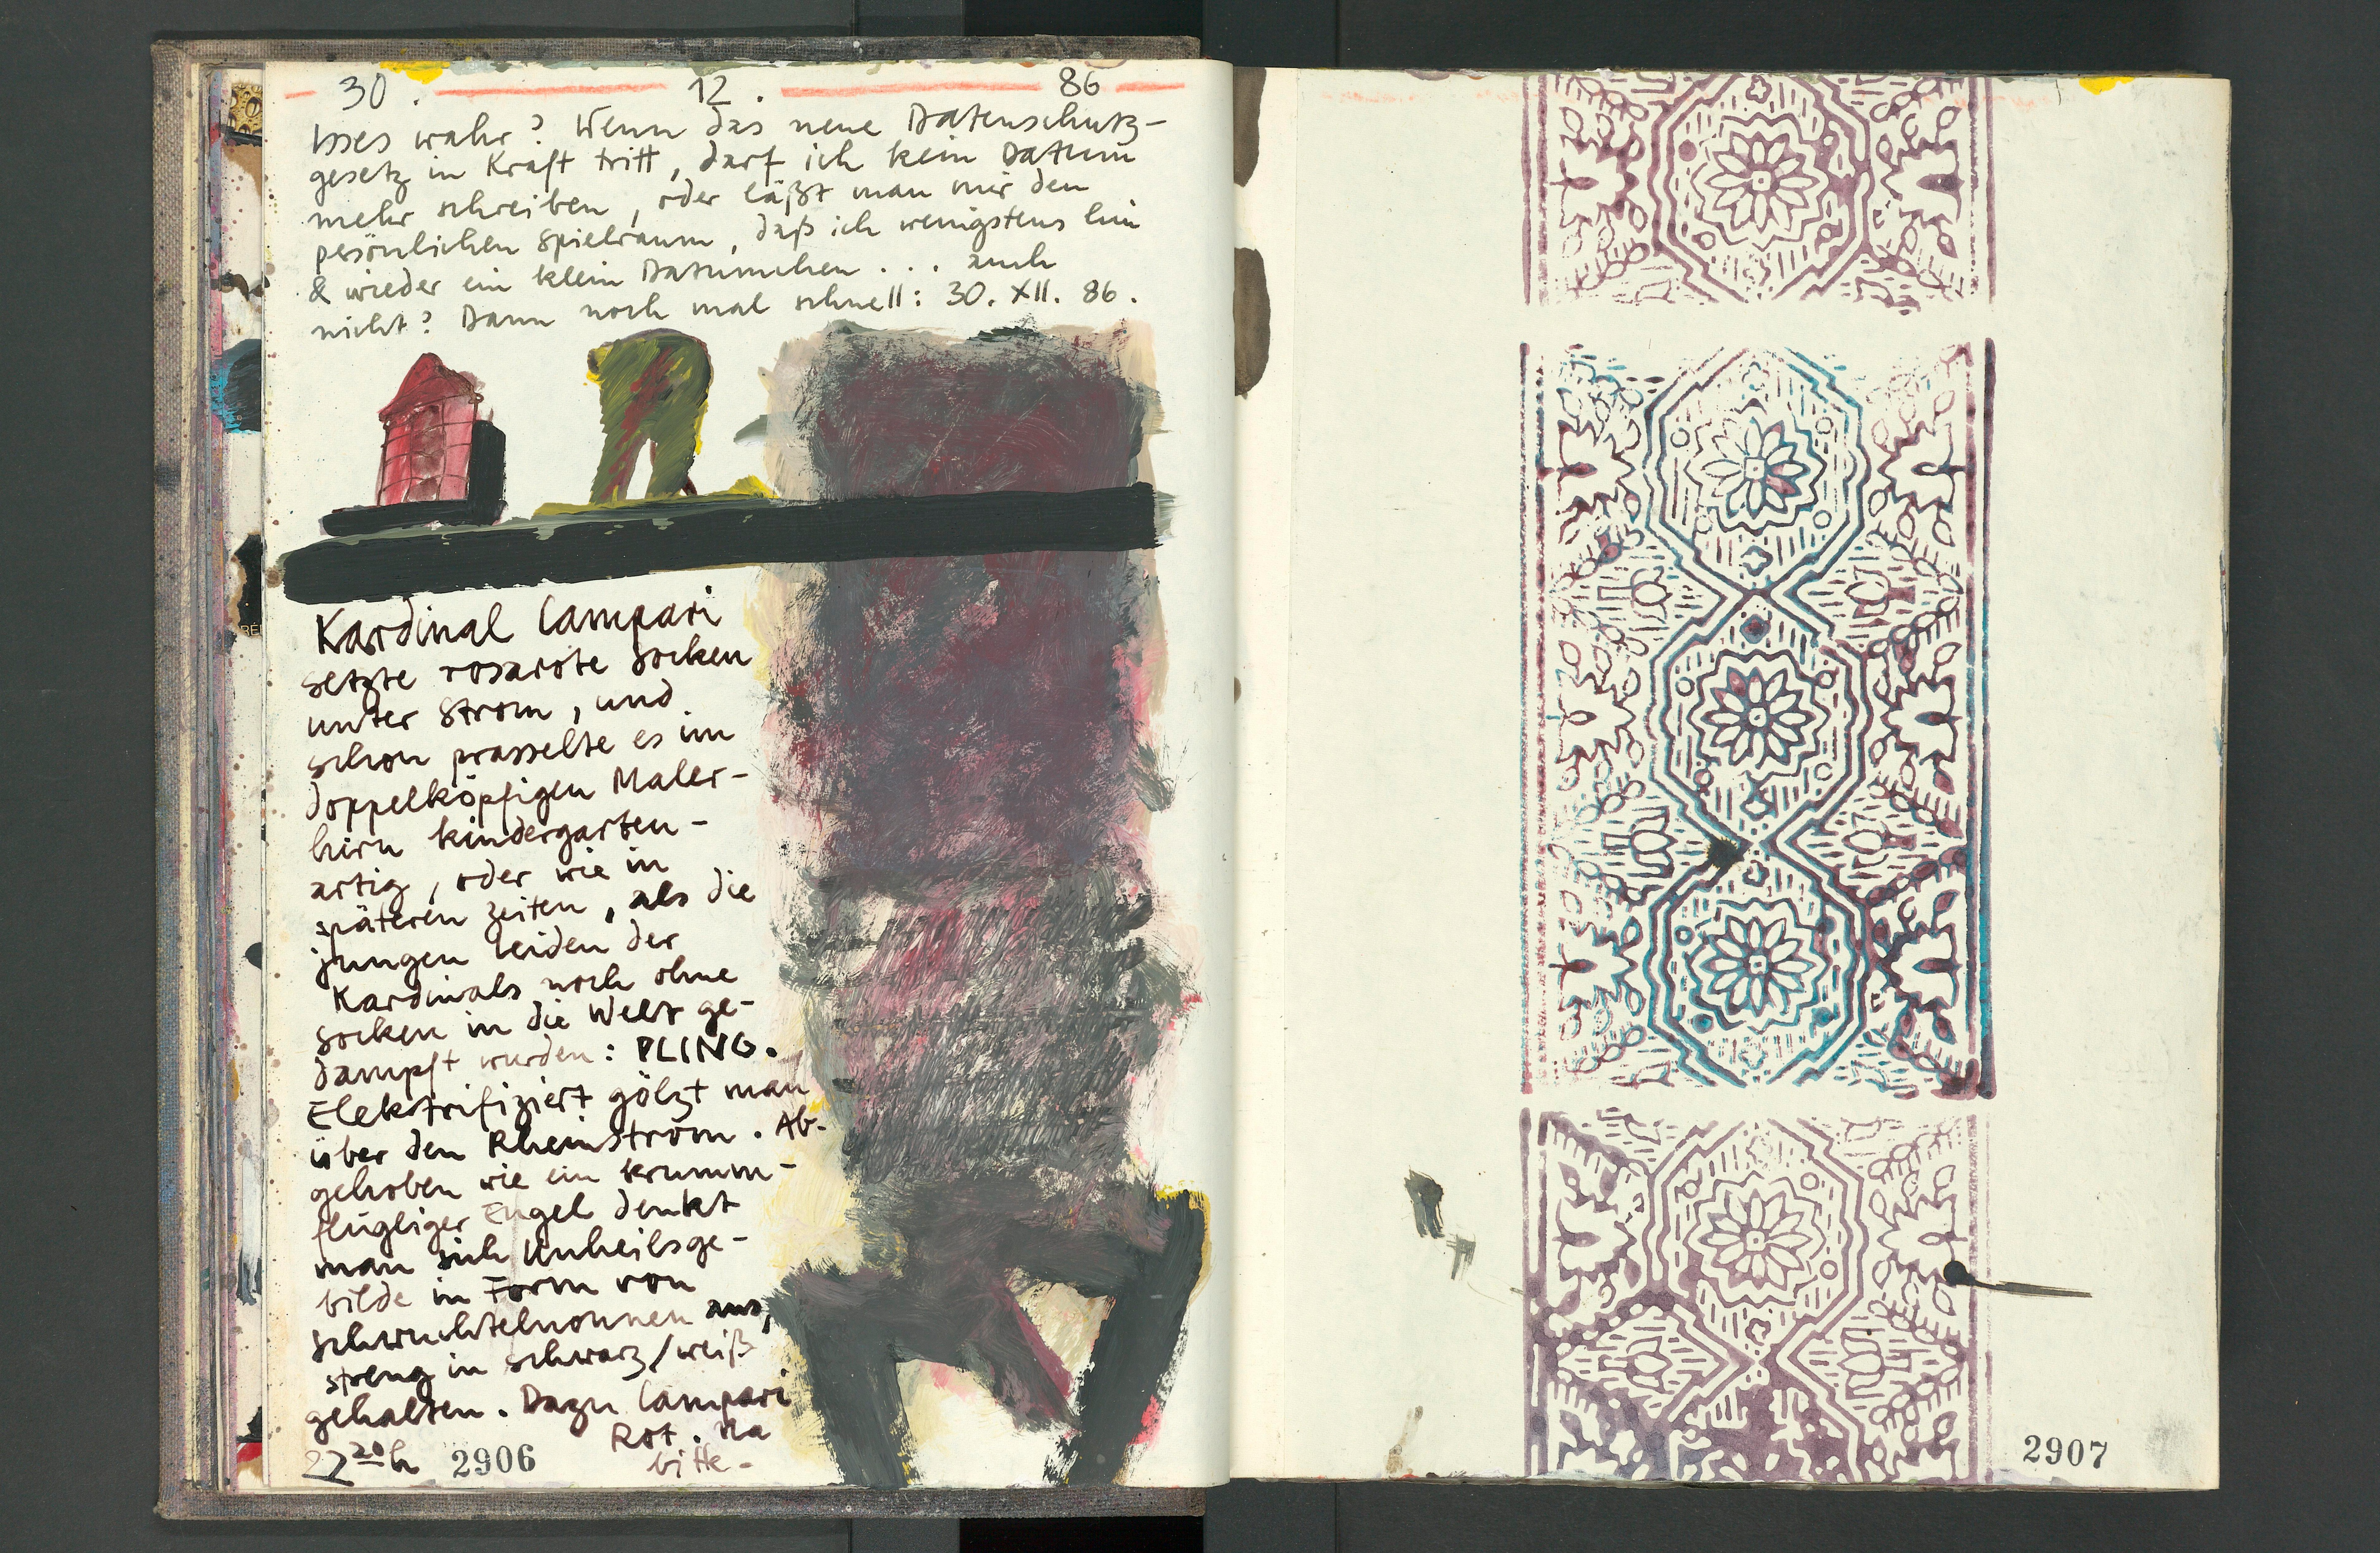 30. 12. 86
Isses wahr? Wenn das neue Datenschutz-
gesetz in Kraft tritt, darf ich kein Datum
mehr schreiben, oder läßt man mir den
persönlichen Spielraum, daß ich wenigstens hin
& wieder ein klein Datumchen ... auch
nicht? Dann noch mal schnell: 30. XII. 86.
Kardinal Campari
setzte rosarote Socken
unter Strom, und
schon prasselte es im
doppelköpfigen Maler-
hirn kindergarten-
artig, oder wie in
späteren Zeiten, als die
jungen Leiden der
Kardinals noch ohne
Socken in die Welt ge-
dampft wurden: PLING.
Elektrifiziert gölzt man
über den Rheinstrom. Ab-
gehoben wie ein krumm-
flügliger Engel denkt
man sich Unheilsge-
bilde in Form von
Schwuchtelnonnen aus,
streng in schwarz/weiß
gehalten. Dazu Campari
Rot. Na
bitte-
22 20 h 2906
2907